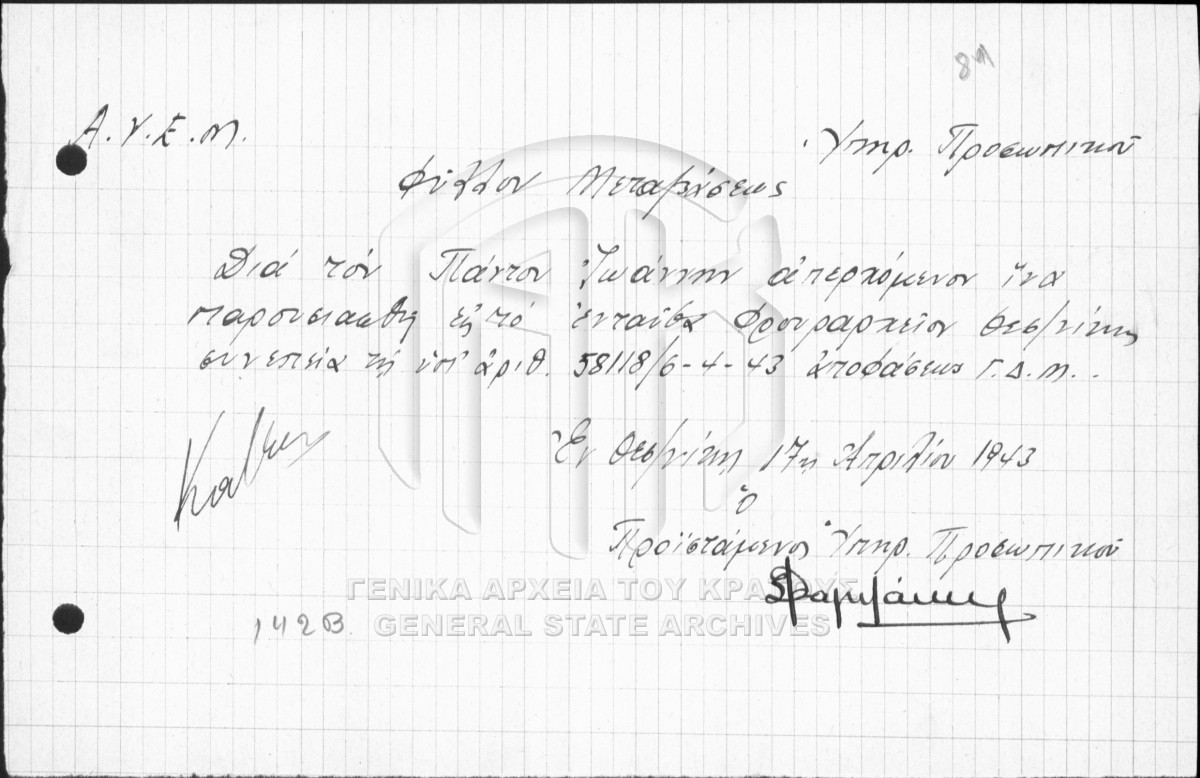 84
Α.Υ.Ε.Μ.
Ὑπηρ. Προσωπικοῦ
Φύλλον Μεταβάσεως
Διά τόν Πάντον Ἰωάννην ἀπερχόμενον ἵνα
παρουσιασθῇ εἰς τό ἐνταῦθα Φρουραρχεῖον Θεσ/νίκης
συνεπείᾳ τῆς ὑπ' ἀριθ. 58118/6-4-43 ἀποφάσεως Γ.Δ.Μ..
Ἐν Θεσ/νίκῃ 17ῃ Ἀπριλίου 1943
Ὁ
Προϊστάμενος Ὑπηρ. Προσωπικοῦ
ΓΕΝΙΚΑ ΑΡΧΕΙΑ ΤΟΥ ΚΡΑΤΟΥΣ
GENERAL STATE ARCHIVES
142Β